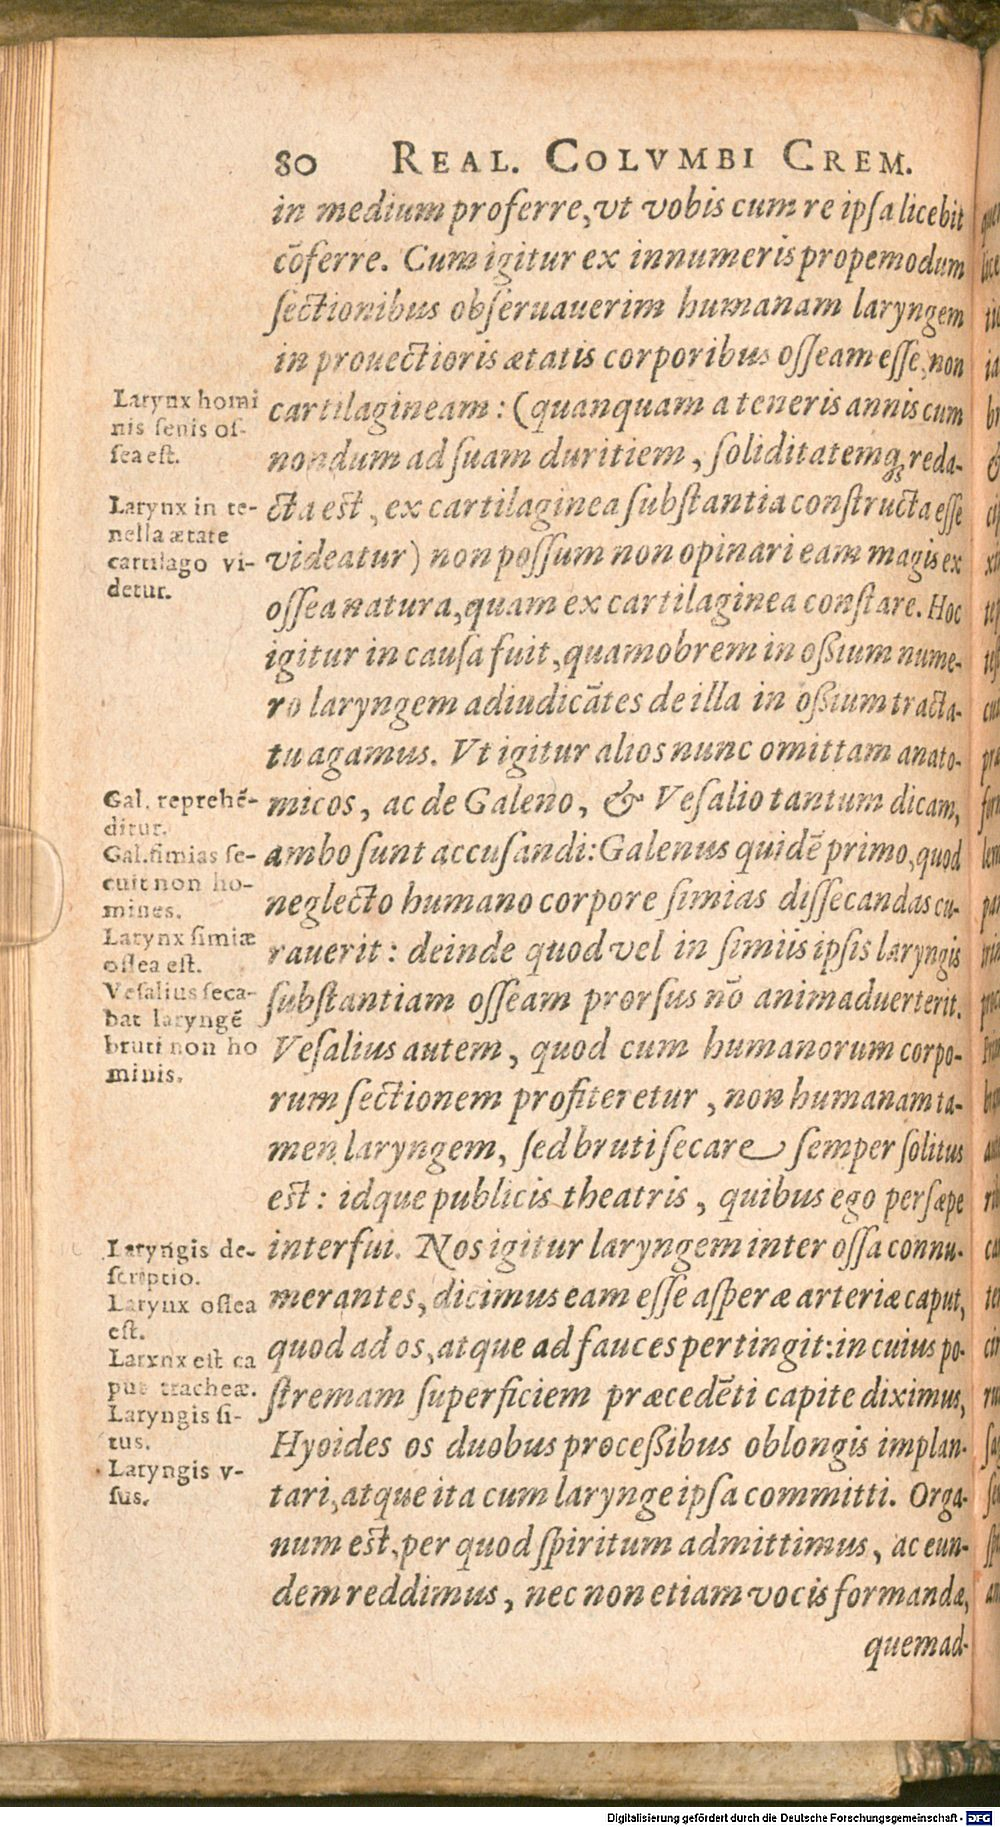 80 REAL. COLVMBI CREM.
in medium proferre, vt vobis cum re ipſa licebit
cõferre. Cum igitur ex innumeris propemodum
ſectionibus obſeruauerim humanam laryngem
in prouectioris ætatis corporibus oſſeam eſſe, non
cartilagineam: (quanquam a teneris annis cum
nondum ad ſuam duritiem, ſoliditatemq́; reda-
cta est, ex cartilaginea ſubstantia conſtructa eſſe
videatur) non poſſum non opinari eam magis ex
oſſea natura, quam ex cartilaginea conſtare. Hoc
igitur in cauſa fuit, quamobrem in oßium nume-
ro laryngem adiudicãtes de illa in oßium tracta-
tu agamus. Vt igitur alios nunc omittam anato-
micos, ac de Galeno, & Veſalio tantum dicam,
ambo ſunt accuſandi: Galenus quidẽ primo, quod
neglecto humano corpore ſimias diſſecandas cu-
rauerit: deinde quod vel in ſimiis ipſis laryngis
ſubstantiam oſſeam prorſus nõ animaduerterit.
Veſalius autem, quod cum humanorum corpo-
rum ſectionem profiteretur, non humanam ta-
men laryngem, ſed bruti ſecare ſemper ſolitus
est: idque publicis theatris, quibus ego perſæpe
interfui. Nos igitur laryngem inter oſſa connu-
merantes, dicimus eam eſſe aſperæ arteriæ caput,
quod ad os, atque ad fauces pertingit: in cuius po-
ſtremam ſuperficiem præcedẽti capite diximus,
Hyoides os duobus proceßibus oblongis implan-
tari, atque ita cum larynge ipſa committi. Orga-
num est, per quod ſpiritum admittimus, ac eun-
dem reddimus, nec non etiam vocis formandæ,
quemad-
Larynx homi
nis ſenis oſ-
ſea eſt.
Larynx in te-
nella ætate
cartilago vi-
detur.
Gal. reprehẽ-
ditur.
Gal. ſimias ſe-
cuit non ho-
mines.
Larynx ſimiæ
oſſea eſt.
Veſalius ſeca-
bat laryngẽ
bruti non ho
minis.
Laryngis de-
ſcriptio.
Larynx oſſea
eſt.
Larxnx eſt ca
put tracheæ.
Laryngis ſi-
tus.
Laryngis v-
ſus.
Digitalisierung gefördert durch die Deutsche Forschungsgemeinschaft - DFG